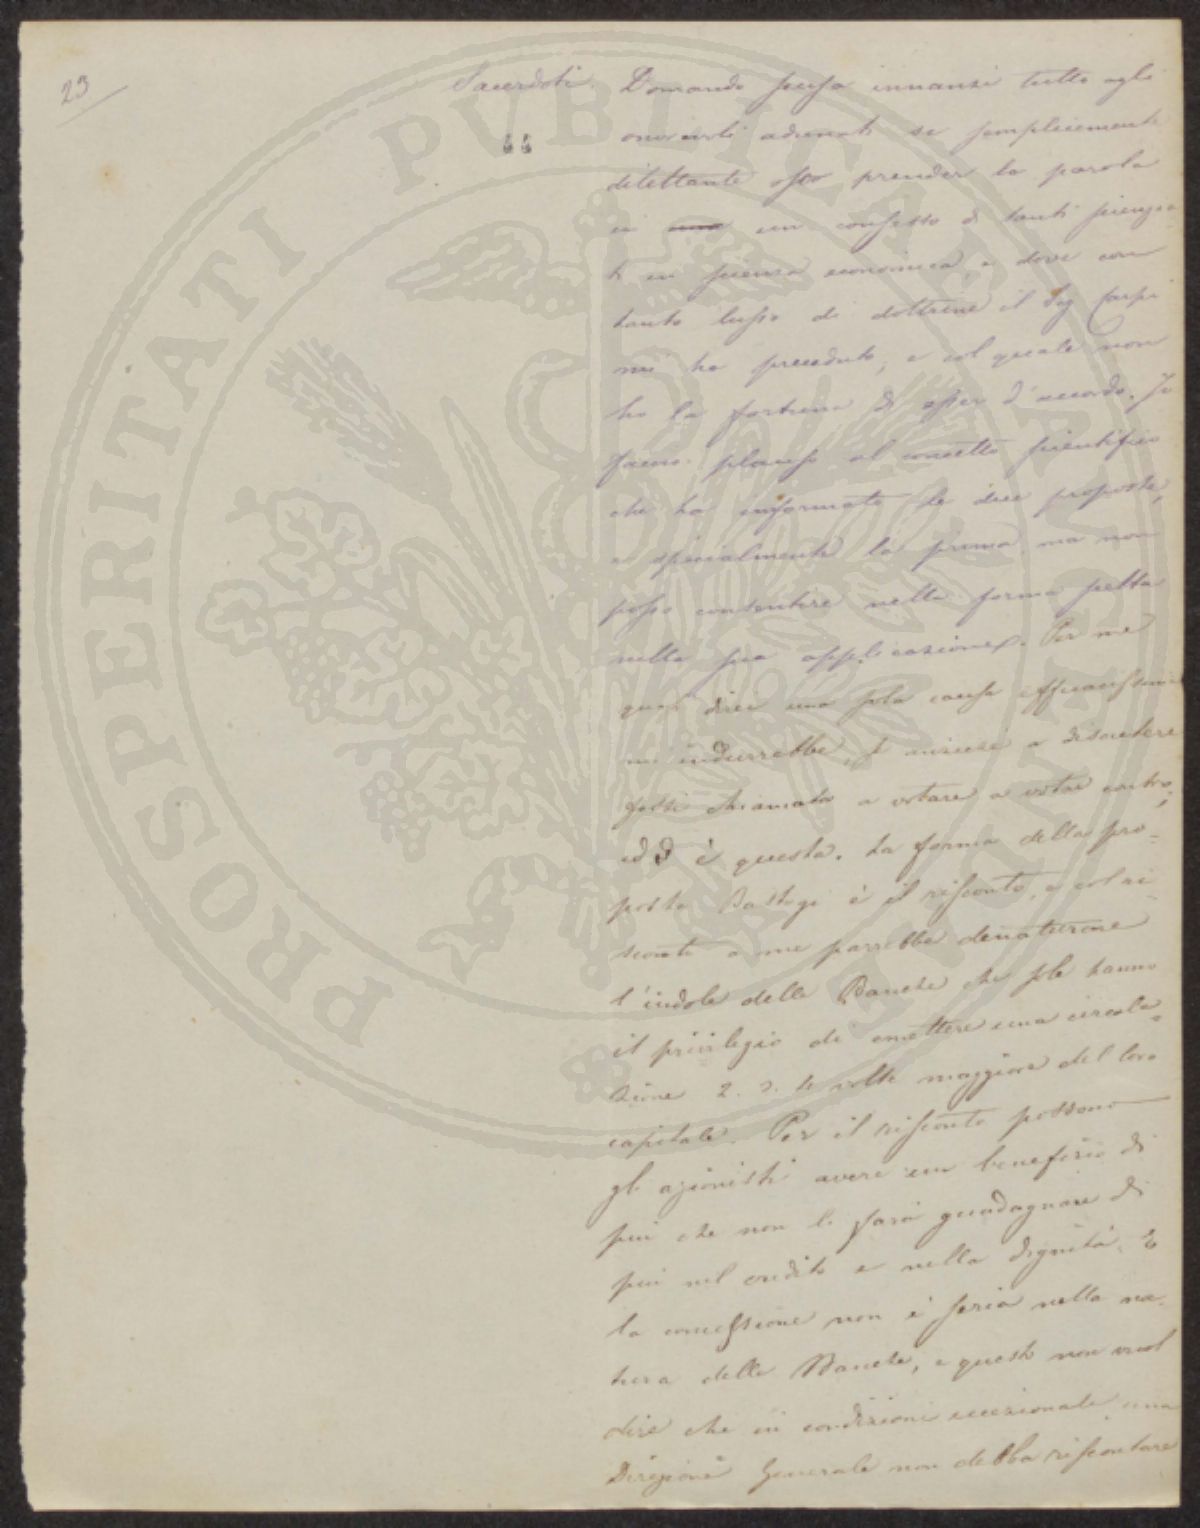 23
Sacerdoti. Domando scusa innanzi tutto agli
44
onorevoli adunati se semplicemente
dilettante oso prender la parola
in un consesso di tanti scienzia
ti in scienza economica, e dove con
tanto lusso di dottrine il Sig Carpi
mi ha preceduto, e col quale non
ho la fortuna di esser d'accordo. Io
faccio plauso al concetto scientifico
che ha informato le due proposte,
e specialmente la prima, ma non
posso consentire nella forma scelta
nella sua applicazione. Per me
quasi direi una sola causa efficacissima
mi indurrebbe, se a discutere
fossi chiamato a votare a votar contro,
ed è questa. La forma della pro-
posta Bastogi è il risconto, e col ri-
sconto a me parrebbe denaturare
l'indole delle Banche che sole hanno
il privilegio di emettere una circola-
zione 2. 3. 4 volte maggiore del loro
capitale. Per il risconto possono
gli azionisti avere un beneficio di
più che non li farà guadagnare di
più nel credito e nella dignità. E
la concessione non è seria nella na-
tura delle Banche, e questo non vuol
dire che in condizioni eccezionali una
Direzione Generale non debba riscontare
PROSPERITATI PVBLICAE AVGENDAE